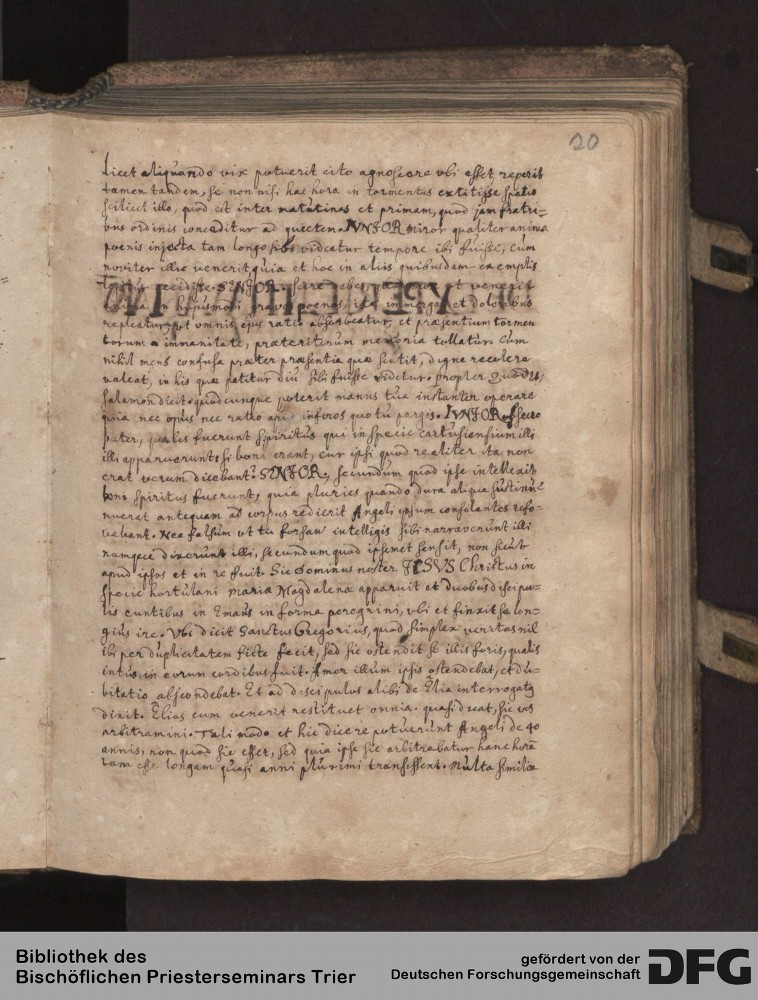 20
Licet aliquando vix potuerit cito agnoscere vbi esset reperit
tamen tandem, se non nisi hac hora in tormentis extitisse spatio
scilicet illo, quod est inter matutinas et primam, quod jam fratri-
bus ordinis conceditur ad quietem. IVNIOR Miror qualiter anima
poenis injecta tam longo sibi videatur tempore ibi fuisse, cum
noviter illic venerit, quia et hoc in aliis quibusdam exemplis
SENIOR. debes, et venerit
in hujusmodi poenas, ita et doloribus
repleatur, ut omnis ejus ratio absorbeatur, et praesentium tormen
torum a immanitate, praeteritorum memoria tollatur. Cum
nihil mens confusa praeter praesentia quae sentit, digne recolere
valeat, in his quae patitur diu sibi fuisse videtur. propter Quod
Salomon dicit. quodcunque poterit manus tua instanter operare
quia nec opus nec ratio apud inferos quo tu pergis. IVNIOR obsecro
pater, quales fuerunt Spiritus qui in specie cartusiensium illi
illi apparuerunt, si boni erant, cur ipsi quod realiter ita non
erat verum dicebant? SENIOR, secundum quod ipse intellexit
boni spiritus fuerunt, quia pluries quando dura aliqua sustinu-
nuerat antequam ad corpus redierit Angeli ipsum consolantes refo-
vebant. Nec falsum ut tu forsan intelligis sibi narraverunt illi
namque dixerunt illi, secundum quod ipsemet sensit, non sicut
apud ipsos et in re fuit. Sic Dominus noster IESVS Christus in
specie hortulani Maria Magdalena apparuit et duobus discipu-
lis euntibus in Emaus in forma peregrini, vbi et finxit se lon-
gius ire. Vbi dicit Sanctus Gregorius, quod simplex veritas nil
ibi per duplicitatem ficte fecit, sed sic ostendit se illis foris, qualis
intus in eorum cordibus fuit. Amor illum ipsis ostendebat, et du-
bitatio abscondebat. Et ad discipulus alibi de Elia interrogatq
dixit. Elias cum venerit restituet omnia. quasi dicat, sic vos
arbitramini. Tali modo et hic dicere potuerunt Angeli de 40
annis, non quod sic esset, sed quia ipse sic arbitrabatur hanc horā
tam esse longam quasi anni plurimi transissent. Multa similia
Bibliothek des
Bischöflichen Priesterseminars Trier
gefördert von der
Deutschen Forschungsgemeinschaft
DFG